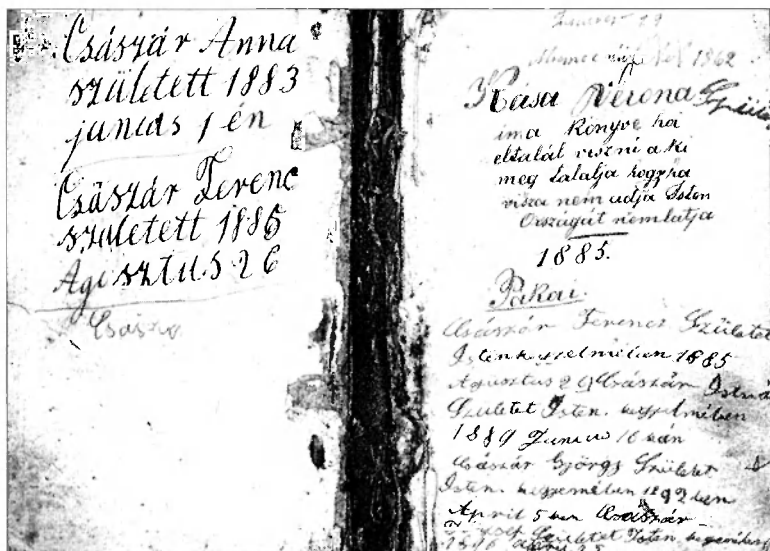 Császár Anna
született 1883
junias 1 én
Császár Ferenc
született 1885
Agusztus 26
Császá
1862
Kasa Verona
ima Könyve ha
eltalál viszni a ki
meg talalja hogy ha
visza nem adja Isten
Országát nemlatja
1885.
Pakai.
Császár Ferencz Születet
Isten kegyelmében 1885
Agusztus 26 Császár István
Születet Isten. kegyelmében
1889 Junius 16 kán
Császár György Születet
Isten. kegyemében 1892 ben
April 5 ben Császár
Születet Isten kegyemében